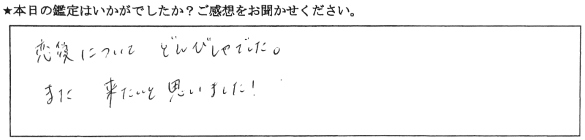 ★本日の鑑定はいかがでしたか？ご感想をお聞かせください。
恋愛について どんぴしゃでした。
また 来たいと思いました！